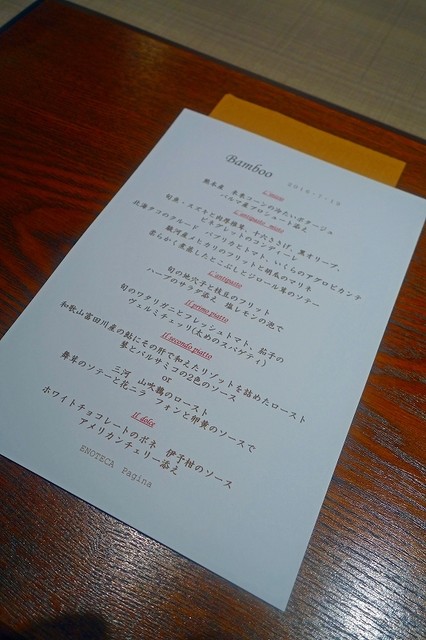 Bamboo
2010・7・10
L'inizio
熊本産 未来コーンの冷たいポタージュ
パルマ産プロシュート添え
L'antipasto misto
旬魚・スズキと肉厚椎茸、十六ささげ、黒オリーブ、
ビネグレットのコンディーレ
北海タコのクルード パプリカとトマト、いくらのアグロピカンテ
駿河産メヒカリのフリットと胡瓜のマリネ
柔らかく煮蒸したとこぶしとジロール茸のソテー
L'antipasto
旬の地穴子と枝豆のフリット
ハーブのサラダ添え 塩レモンの泡で
Il primo piatto
旬のワタリガニとフレッシュトマト、茄子の
ヴェルミチェッリ(太めのスパゲティ)
Il secondo piatto
和歌山富田川産の鮎にその肝で和えたリゾットを詰めたロースト
蓼とバルサミコの2色のソース
or
三河 山吹鶏のロースト
舞茸のソテーと花ニラ フォンと卵黄のソースで
Il dolce
ホワイトチョコレートのボネ 伊予柑のソース
アメリカンチェリー添え
ENOTECA Pagina